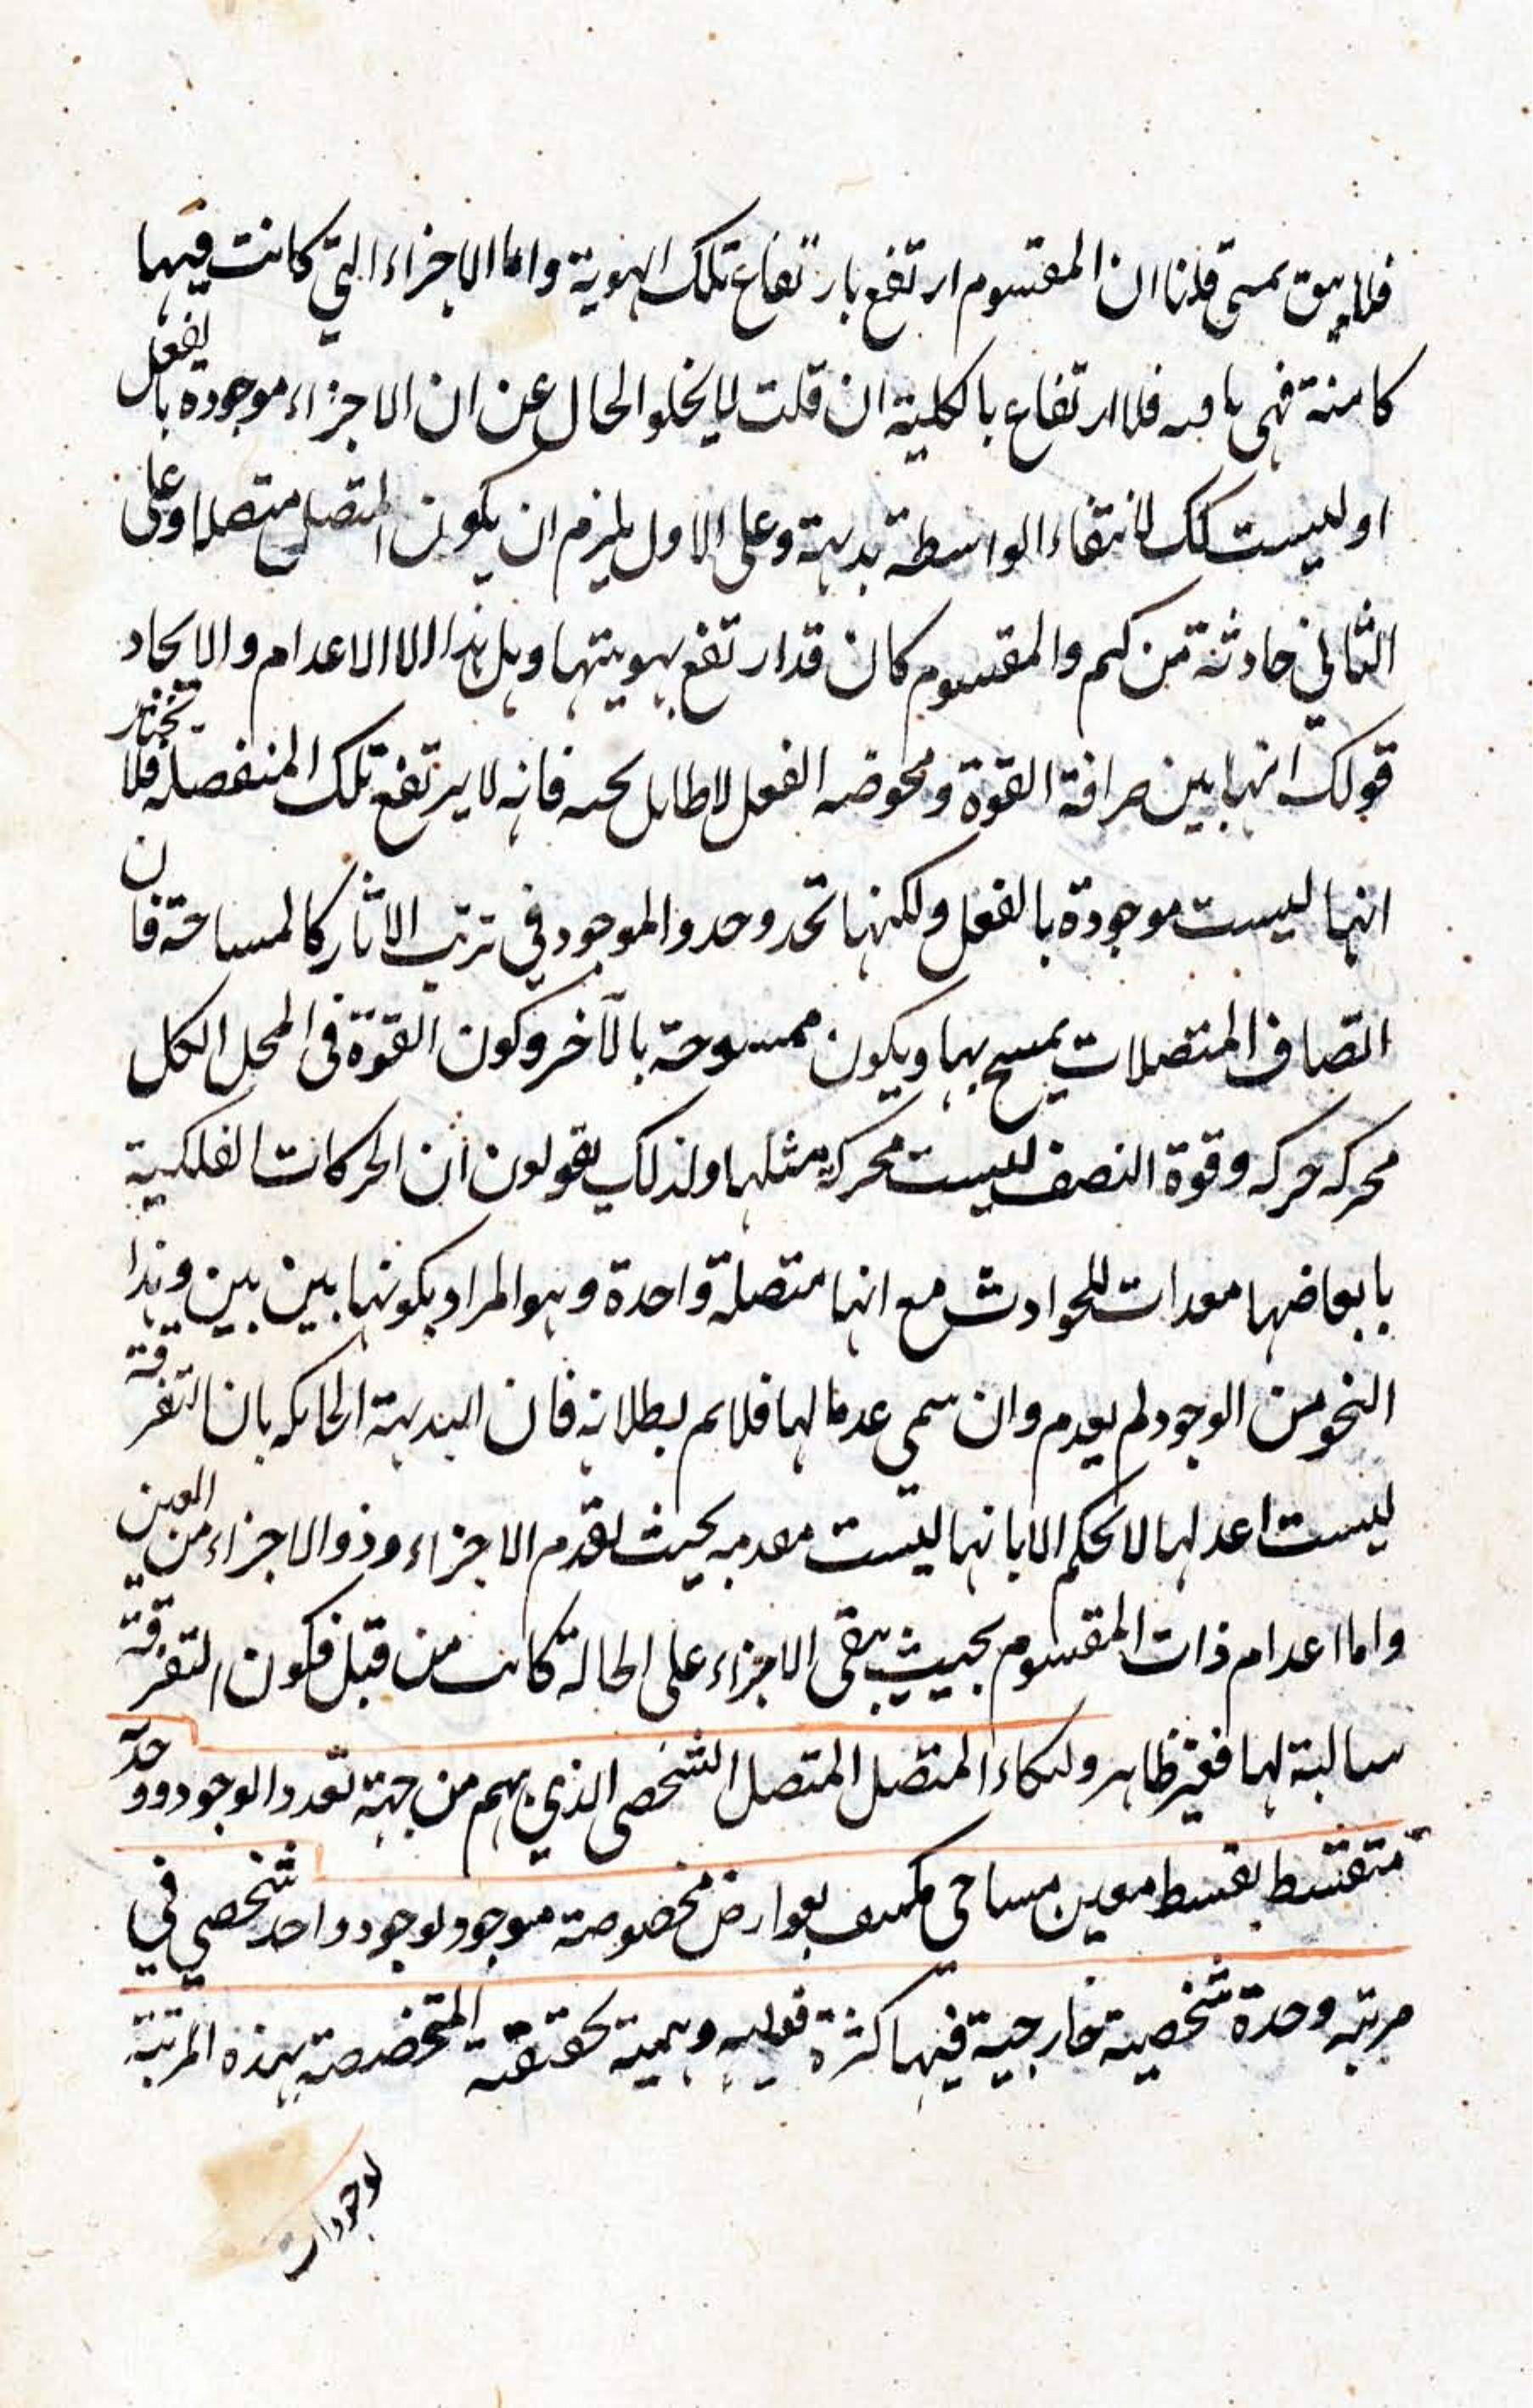 فلا يبق بمسمى قلنا ان المقسوم ارتفع بارتفاع تلك الهوية واما الاجزاء التي كانت فيها
كامنة فهي باقيه فلا ارتفاع بالكلية ان قلت لا يخلو الحال عن ان الاجزاء موجوده بالفعل
او ليست كك لانتفاء الواسطة بديهة وعلى الاول يلزم ان يكون المتصل متصلا وعلى
الثاني حادثة من كم والمقسوم كان قد ارتفع بهويتها وهل هذا الا الاعدام والايجاد
قولك انها بين صرافة القوة ومحوضه الفعل لا طايل تحته فانه لا يرتفع تلك المنفصله قلنا نختار
انها ليست موجودة بالفعل ولكنها تحدو حدو الموجود في ترتب الاثار كالمساحة فان
اتصاف المتصلات يمسح بها ويكون ممسوحة بالآخر وكون القوة في المحل الكل
محركه حركه وقوة النصف ليست محركة مثلها ولذلك يقولون ان الحركات الفلكية
بابعاضها معدات للحوادث مع انها متصلة واحدة وهو المراد بكونها بين بين وهذا
النحو من الوجود لم يعدم وان سمى عدما لها فلا نم بطلانه فان البديهة الحاكمه بان التفرقة
ليست اعد لها لا تحكم الا بانها ليست معدمه بحيث تعدم الاجزاء وذو الاجزاء من البين
واما اعدام ذات المقسوم بحيث يبقى الاجزاء على الحالة كانت من قبل فكون التفرقة
سالبة لها فغير ظاهر المتصل المتصل الشخصي الذي من جهة تعدد الوجود ووحدة
متقسط بقسط معين مساحي مكنف بعوارض مخصوصة موجود بوجود واحد شخصي في
مرتبه وحدة شخصيه خارجية فيها كثرة وهمية المتخصصة بهذه المرتبة
بوجودات